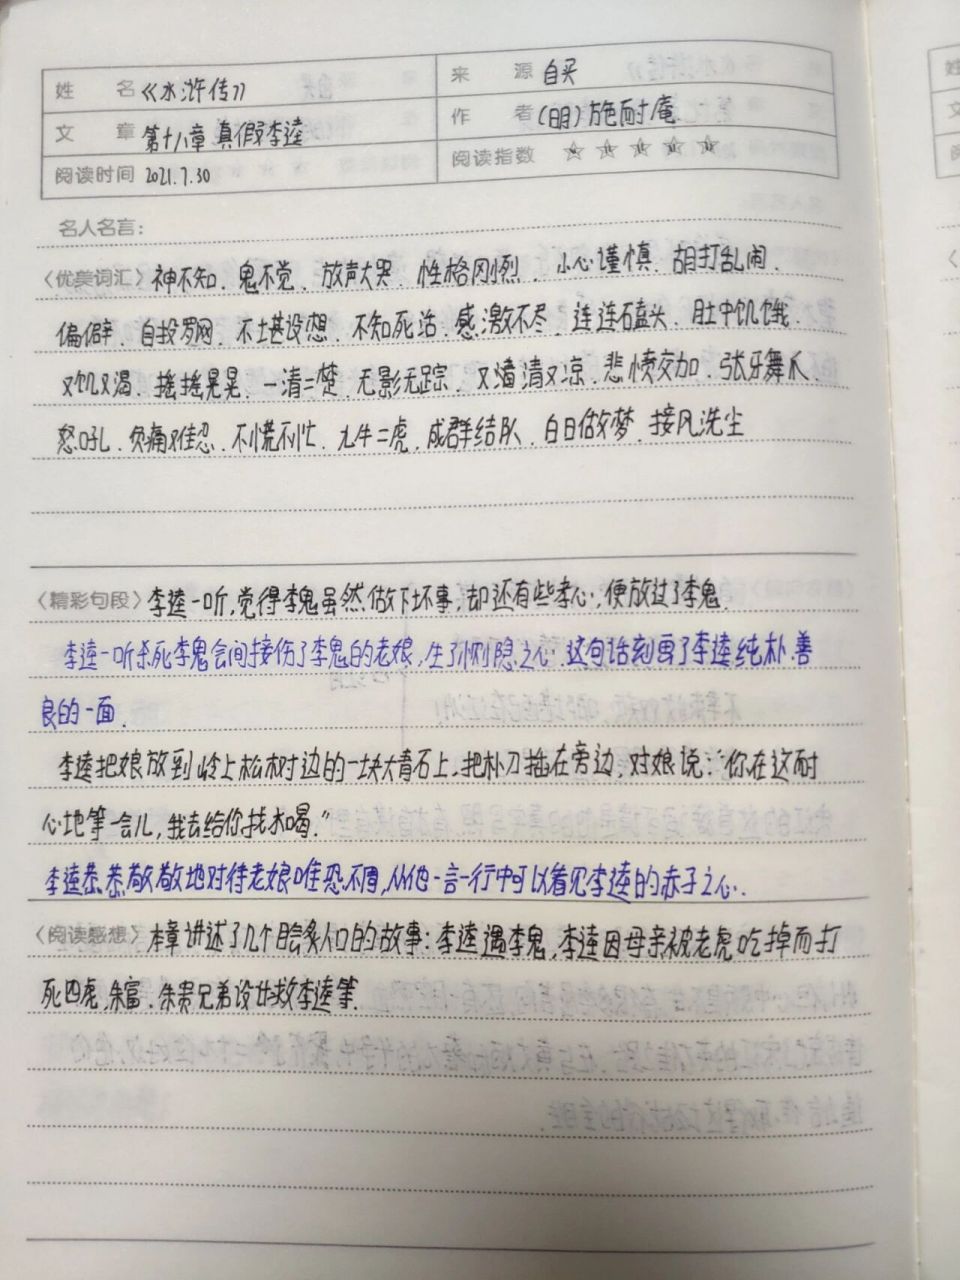 姓 名 《水浒传》 来 源 自买
文 章 第十八章 真假李逵 作 者 (明)施耐庵
阅读时间 2021.7.30 阅读指数 ☆ ☆ ☆ ☆ ☆
名人名言:
〈优美词汇〉神不知、鬼不觉、放声大哭、性格刚烈、小心谨慎、胡打乱闹、
偏僻、自投罗网、不堪设想、不知死活、感激不尽、连连磕头、肚中饥饿、
又饥又渴、摇摇晃晃、一清二楚、无影无踪、又清又凉、悲愤交加、张牙舞爪、
怒吼、负痛难忍、不慌不忙、九牛二虎、成群结队、白日做梦、接风洗尘
〈精彩句段〉李逵一听,觉得李鬼虽然做下坏事,却还有些孝心,便放过了李鬼.
李逵一听杀死李鬼会间接伤了李鬼的老娘,生了恻隐之心.这句话刻画了李逵纯朴.善
良的一面.
李逵把娘放到岭上松树边的一块大青石上,把朴刀插在旁边,对娘说:“你在这耐
心地等一会儿,我去给你找水喝.”
李逵恭恭敬敬地对待老娘唯恐不周,从他一言一行中可以看见李逵的赤子之心.
〈阅读感想〉本章讲述了几个脍炙人口的故事:李逵遇李鬼,李逵因母亲被老虎吃掉而打
死四虎,朱富、朱贵兄弟设计救李逵等.